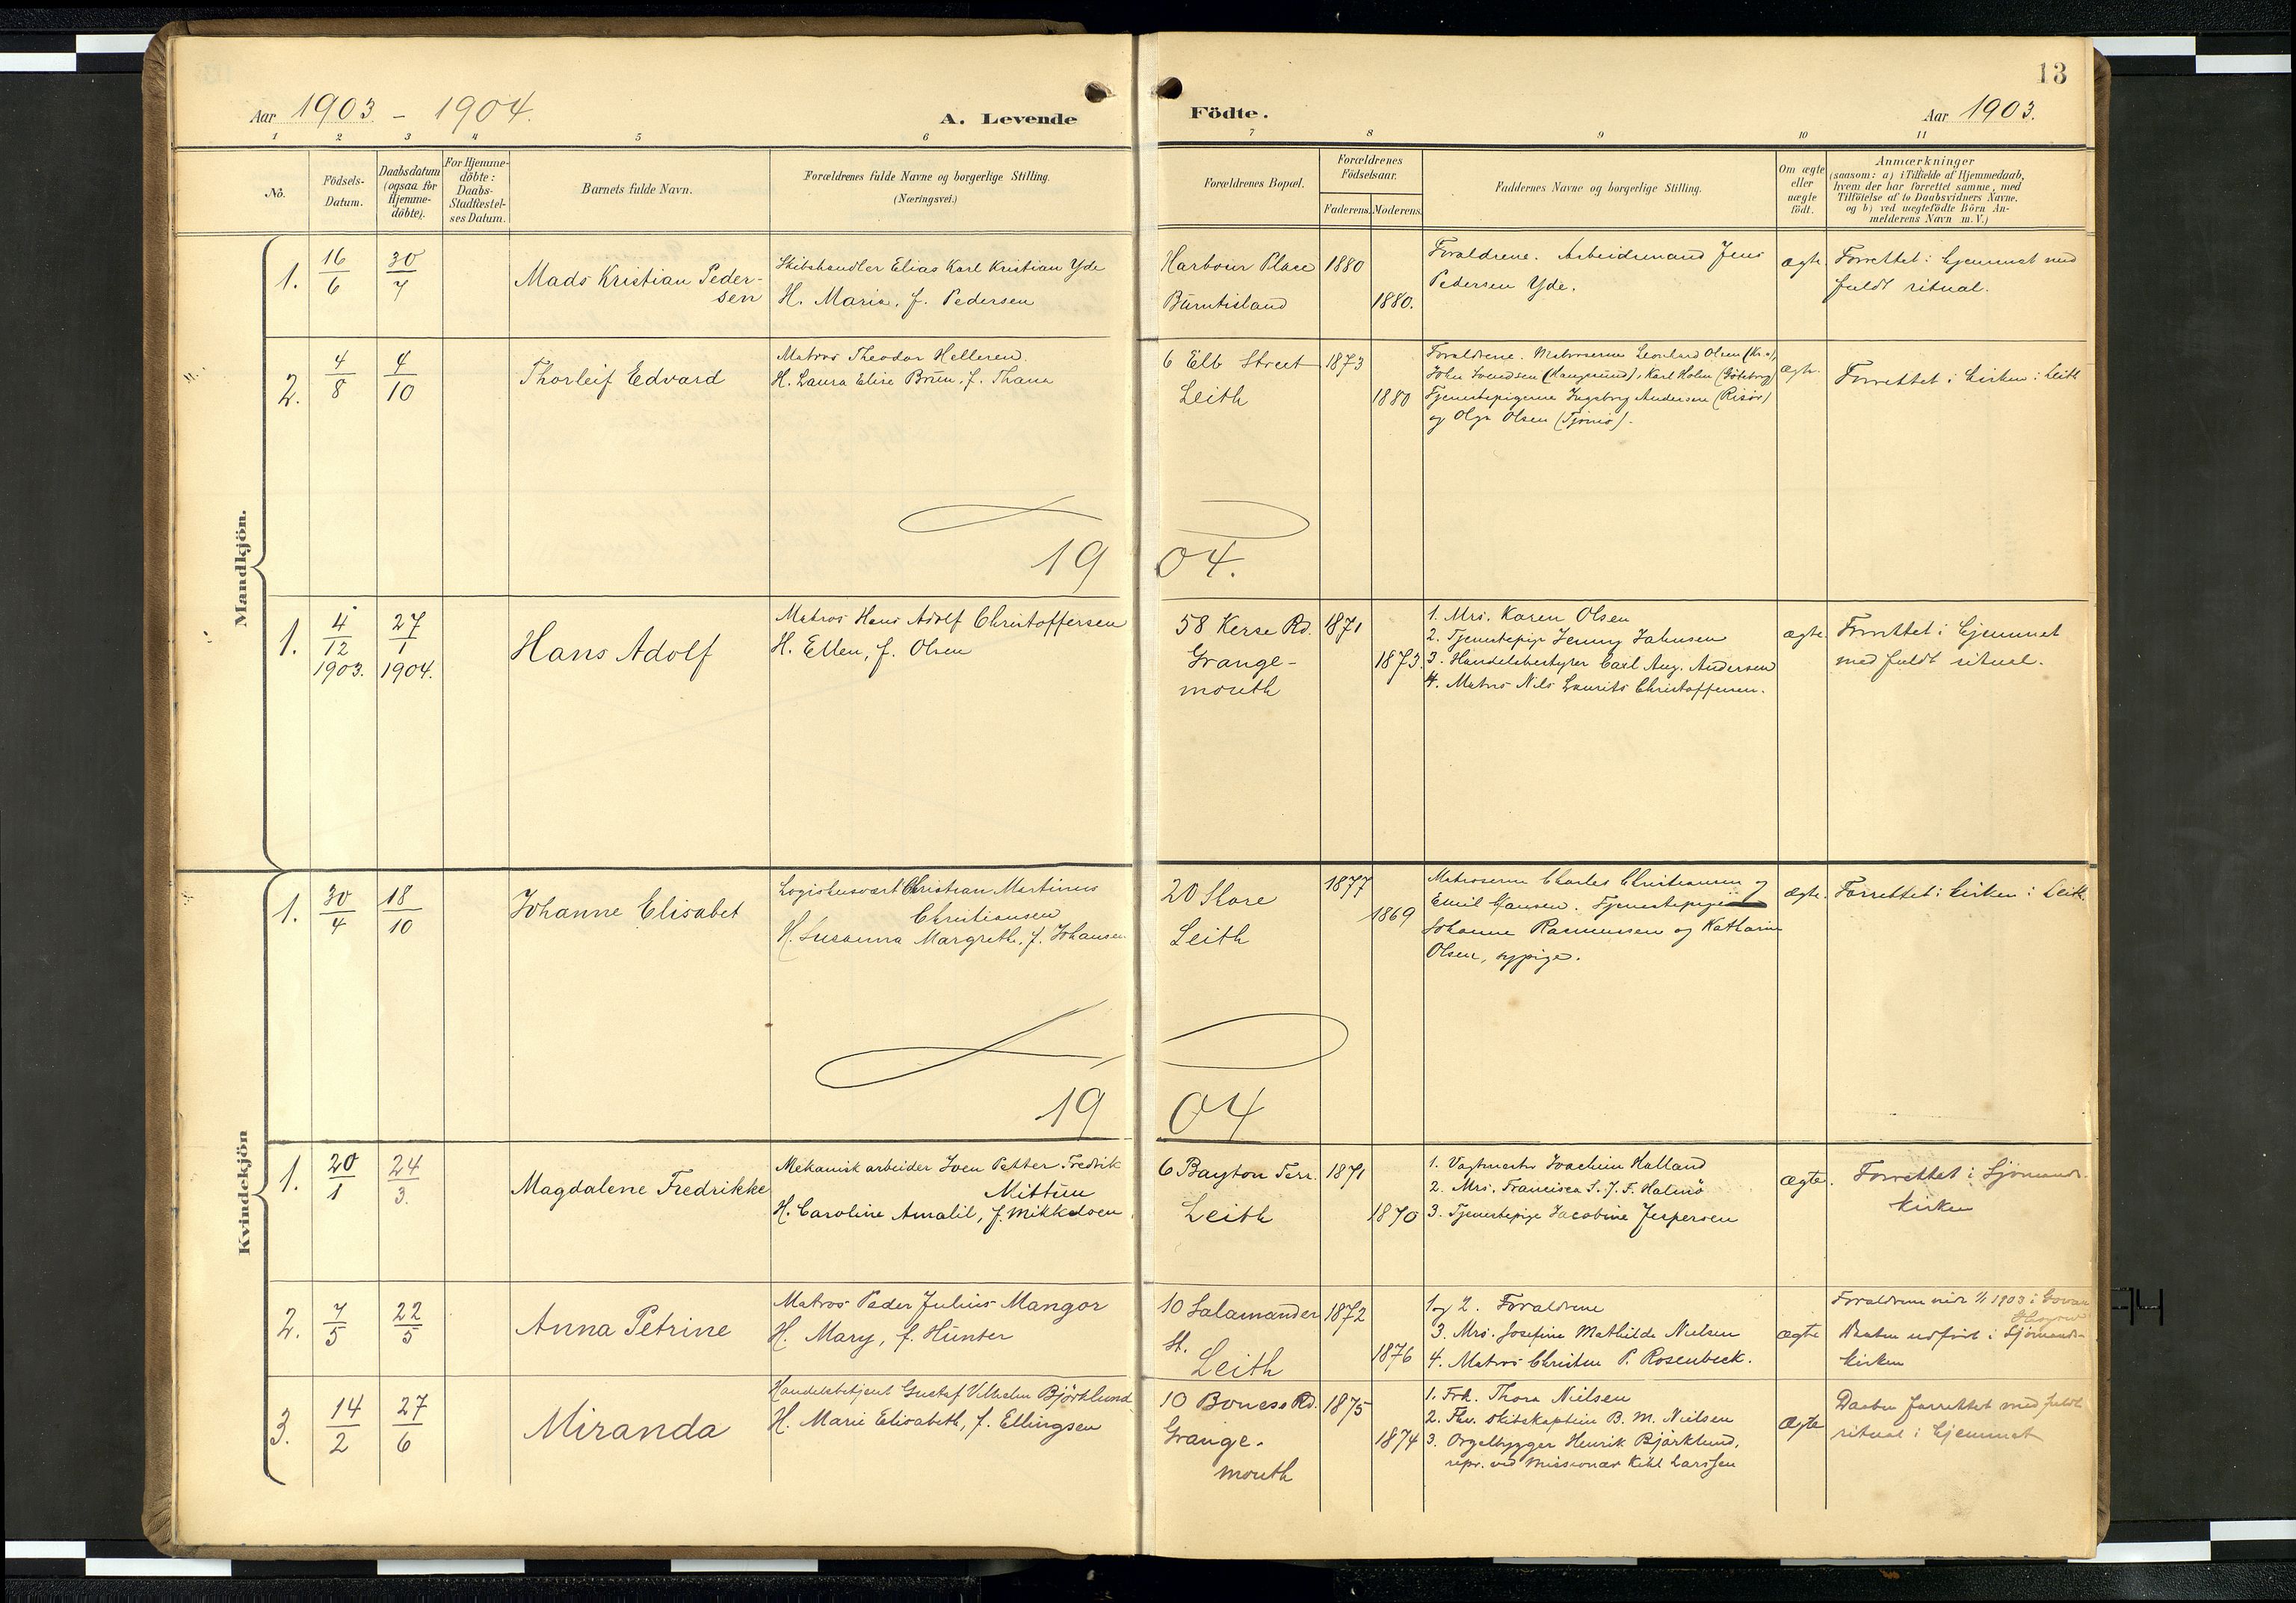 13
Aar 1903 - 1904.
A. Levende
Födte.
Aar 1903.
1 2 3 4 5 6 7 8 9 10 11
No.
Födsels-
Datum.
Daabsdatum
(ogsaa for
Hjemme-
döbte).
For Hjemme-
döbte:
Daabs-
Stadfæstel-
ses Datum.
Barnets fulde Navn.
Forældrenes fulde Navne og borgerlige Stilling.
(Næringsvei.)
Forældrenes Bopæl.
Forældrenes
Födselsaar.
Faderens. Moderens.
Faddernes Navne og borgerlige Stilling.
Om ægte
eller
uægte
födt.
Anmærkninger
(saasom: a) i Tilfælde af Hjemmedaab,
hvem der har forrettet samme, med
Tilföielse af to Daabsvidners Navne.
og b) ved uægtefödte Börn An-
melderens Navn m. V.)
Mandkjön.
1.
16/6
30/7
Mads Kristian Peder-
sen
Skibshandler Elias Karl Kristian Yde
H. Maria, f. Pedersen
Harbour Place
Burntisland
1880
1880.
Forældrene. Arbeidsmand Jens
Pedersen Yde.
ægte
Forrettet i hjemmet med
fuldt ritual.
2.
4/8
4/10
Thorleif Edvard
Matros Theodor Helleren.
H. Laura Elise Brun, f. Thana
6 Elb Street
Leith
1873
1880
Forældrene. Matroserne Leonhard Olsen (Kr.a),
John Svendsen (Langesund), Karl Holm (Göteborg)
Tjenestepigerne Ingeborg Andersen (Risör)
og Olga Olsen (Tjömö).
ægte
Forrettet i kirken i Leith
1904.
1.
4/12
1903.
27/1
1904.
Hans Adolf
Matros Hans Adolf Christoffersen
H. Ellen, f. Olsen
58 Kerse Rd.
Grange-
mouth
1871
1873.
1. Mrs. Karen Olsen
2. Tjenestepige Jenny Johnsen
3. Handelsbestyrer Carl Aug. Andersen
4. Matros Nils Laurits Christoffersen.
ægte
Forrettet i hjemmet
med fuldt ritual.
Kvindekjön
1.
30/4
18/10
Johanne Elisabet
Logishusvært Christian Martinus
Christiansen
H. Susanna Margrethe, f. Johansen
20 Shore
Leith
1877
1869
Matroserne Charles Christiansen og
Emil Hansen. Tjenestepige
Johanne Rasmussen og Katharine
Olsen, sypige.
ægte.
Forrettet i kirken i Leith.
1904
1.
20/1
24/3.
Magdalene Fredrikke
Mekanisk arbeider Iven Petter Fredrik
Mittun
H. Caroline Amalie, f. Mikkelsen
6 Bayton Terr.
Leith
1871
1870
1. Vagtmester Joachim Halland
2. Mrs. Francisca S. J. F. Holmö
3. Tjenestepige Jacobine Jespersen
ægte.
Forrettet i Sjömands-
kirken
2.
7/5
22/5
Anna Petrine
Matros Peder Julius Mangor
H. Mary, f. Hunter
10 Salamander
St.
Leith
1872
1876
1 og 2. Forældrene
3. Mrs. Josefine Mathilde Nielsen
4. Matros Christen P. Rosenbeck.
ægte
Forældrene viede 1/1 1903 i Govan
Glasgow
Daaben udfört i Sjömands-
kirken
3.
14/2
27/6
Miranda
Handelsbetjent Gustaf Vilhelm Björklund
H. Marie Elisabeth, f. Ellingsen
10 Boness Rd.
Grange-
mouth
1875
1874
1. Frk. Thora Nielsen
2. Fhv. Skibskaptein B. M. Nielsen
3. Orgelbygger Henrik Björklund,
repr. ved Missionær Kihl Larssen
ægte
Daaben forrettet med fuldt
ritual i hjemmet